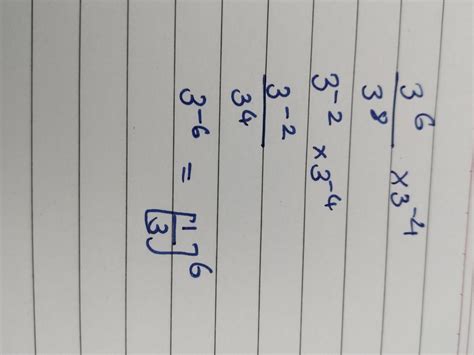 3^6/3^8 × 3^-4
3^-2 × 3^-4
3^-2/3^4
3^-6 = [1/3]^6